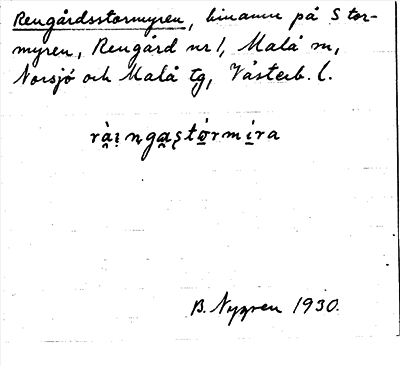 Rengårdsstormyren, binamn på Stor-
myren, Rengård nr 1, Malå sn,
Norsjö och Malå tg, Västerb. l.
rài̯ngas̨tórmíra
B. Nygren 1930.